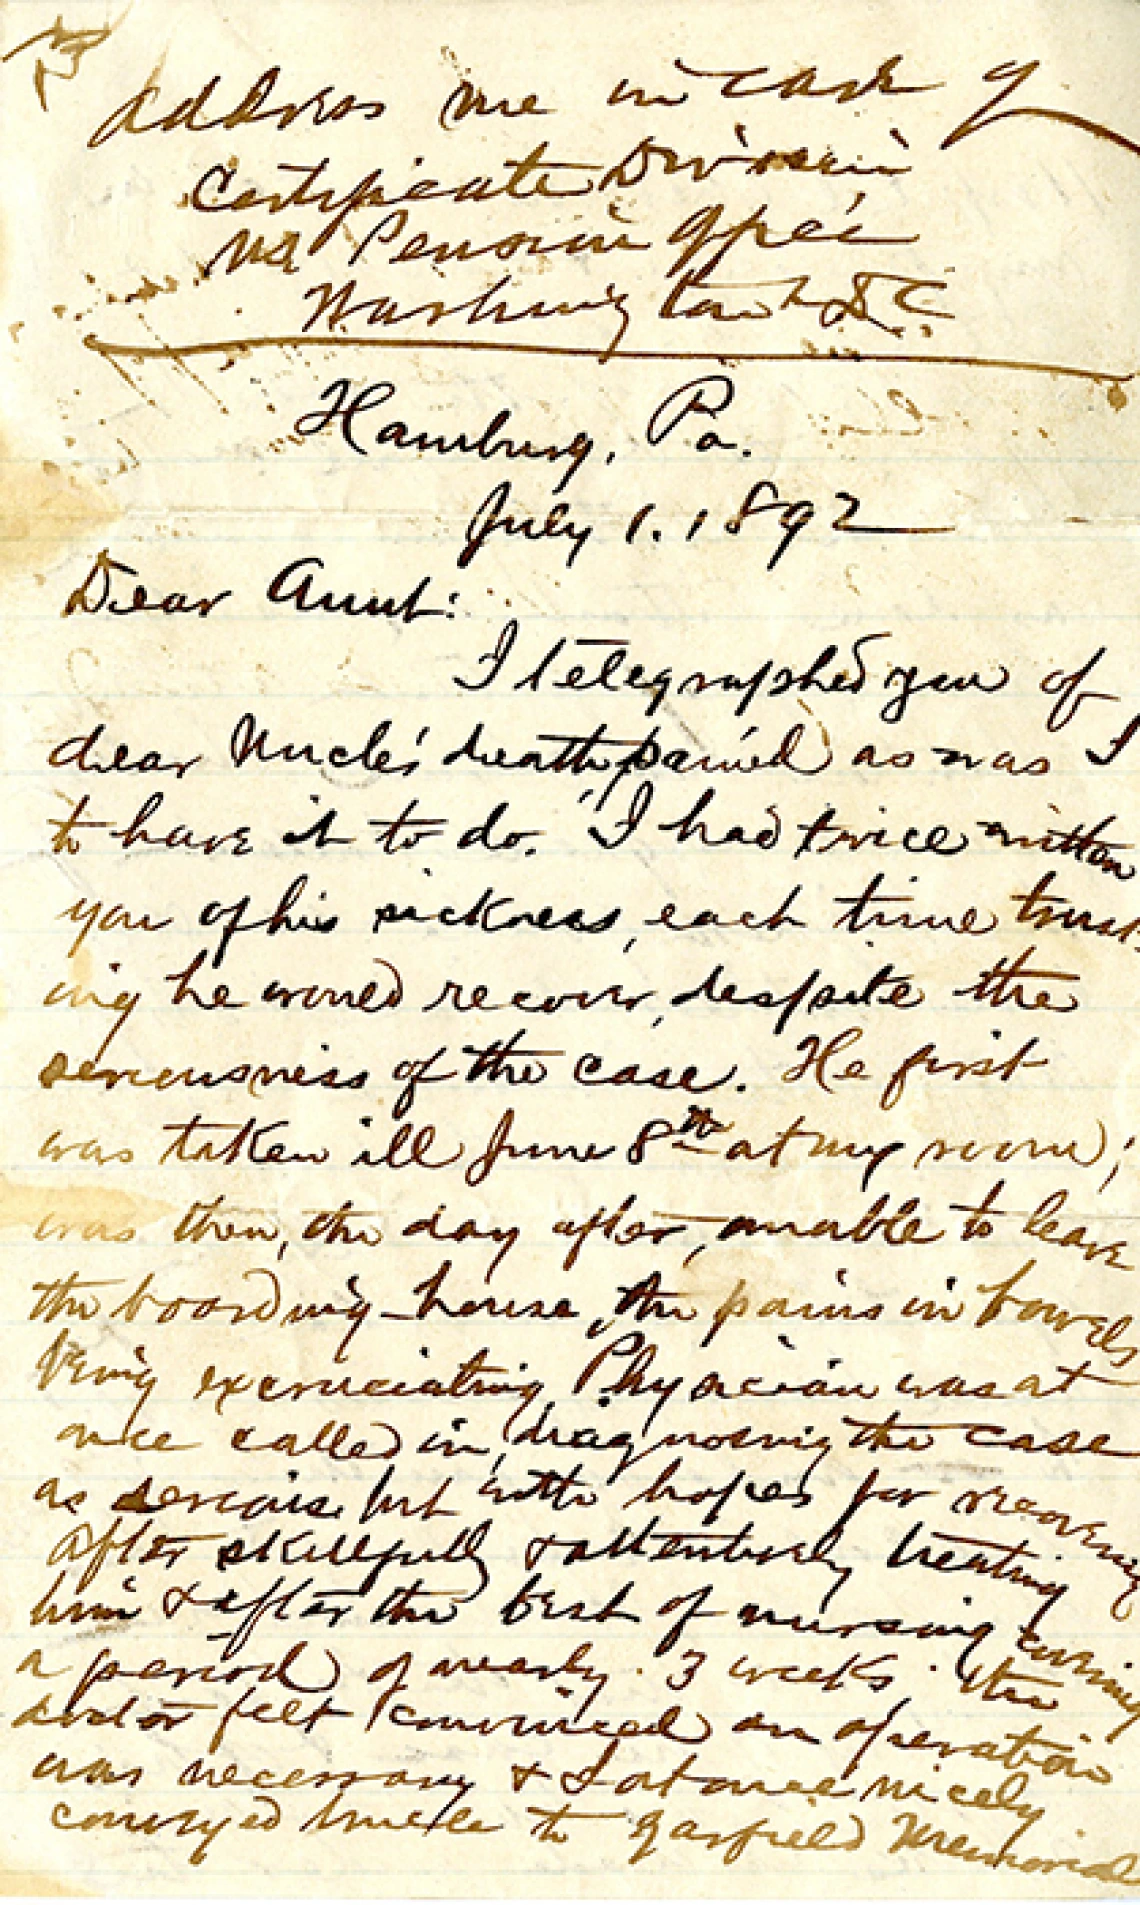 Address me in care of
Certificate Division
US Pension Office
Washington D C.
Hamburg, Pa.
July 1. 1892
Dear Aunt:
I telegraphed you of
dear Uncle's death, pained as was I
to have it to do. I had twice written
you of his sickness, each time trust-
ing he would recover, despite the
seriousness of the case. He first
was taken ill June 8th at my room;
was then, the day after, unable to leave
the boarding-house, the pains in bowels
being excruciating. Physician was at
once called in, diagnosing the case
as serious but with hopes for recovery
After skillfully & attentively treating
him & after the best of nursing during
a period of nearly 3 weeks the
doctor felt convinced an operation
was necessary & I at once nicely
conveyed Uncle to Garfield Memorial